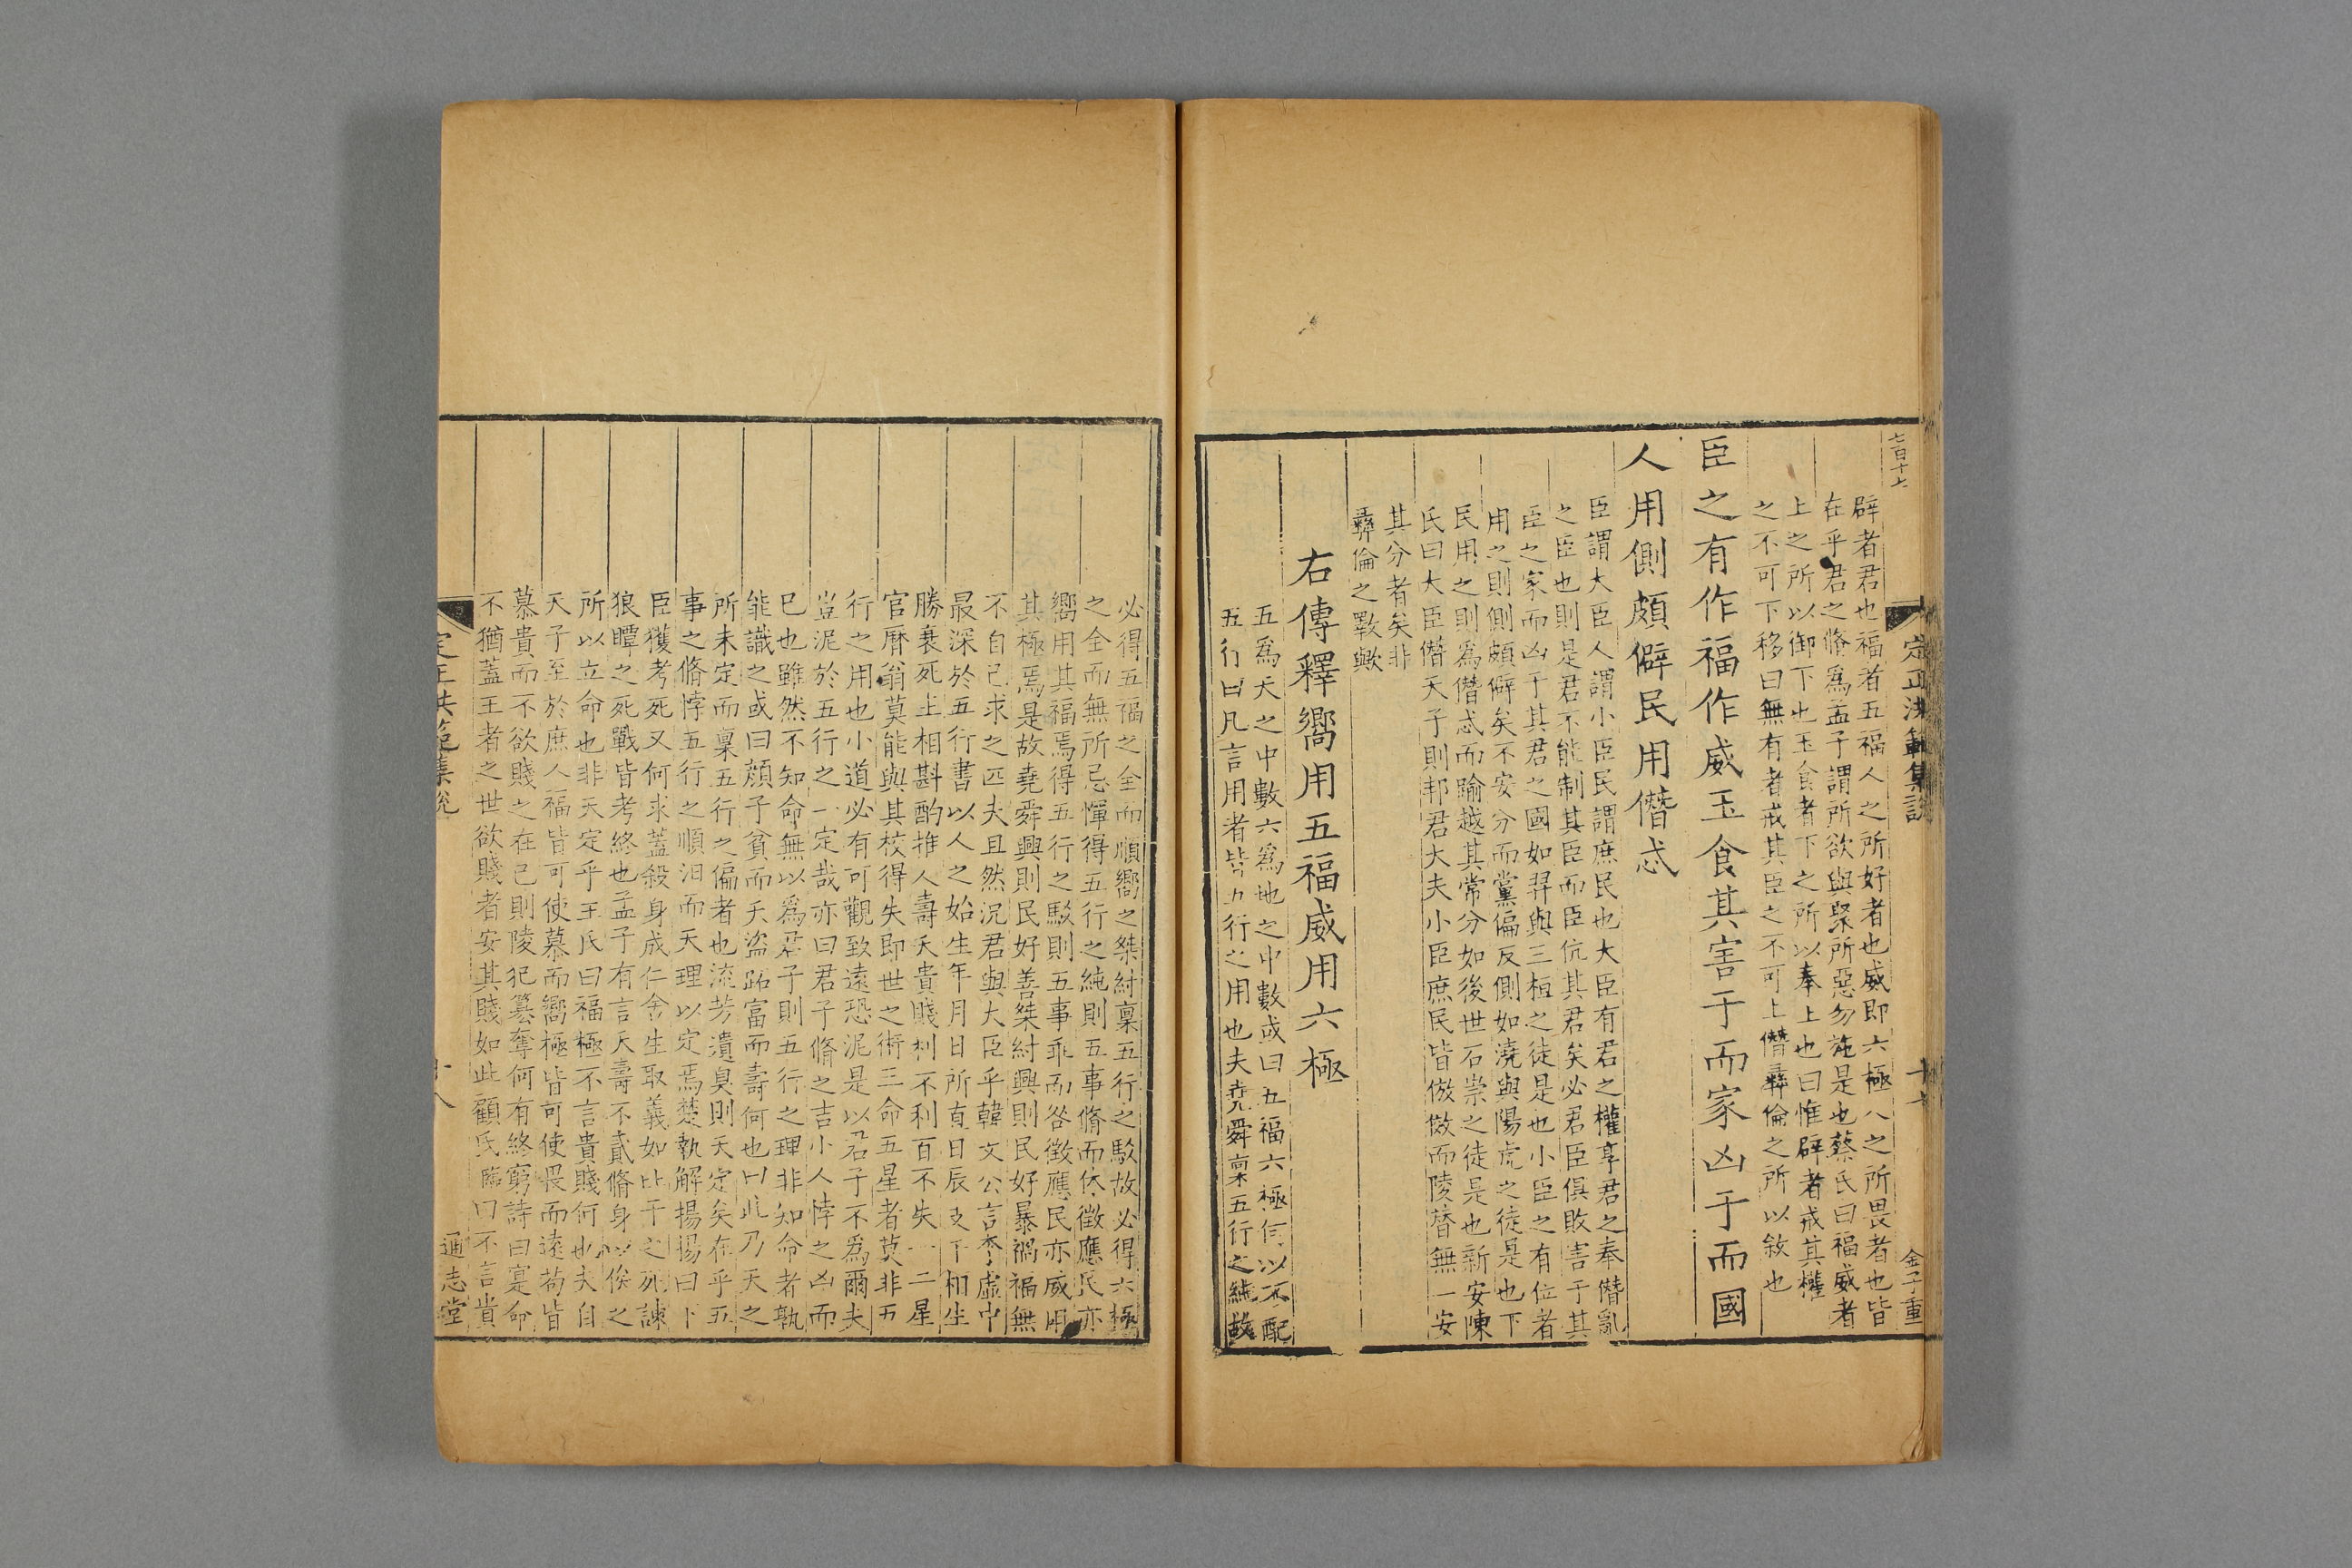 辟者君也福者五福人之所好者也威即六極人之所畏者也皆
在乎君之脩爲孟子謂所欲與聚所惡勿施是也蔡氏曰福威者
上之所以御下也玉食者下之所以奉上也曰惟辟者戒其權
之不可下移曰無有者戒其臣之不可上僭彝倫之所以敘也
臣之有作福作威玉食其害于而家凶于而國
人用側頗僻民用僭忒
臣謂大臣人謂小臣民謂庶民也大臣有君之權享君之奉僭亂
之臣也則是君不能制其臣而臣伉其君矣必君臣俱敗害于其
臣之家而凶于其君之國如羿與三桓之徒是也小臣之有位者
用之則側頗僻矣不安分而黨偏反側如澆與陽虎之徒是也下
民用之則爲僭忒而踰越其常分如後世石崇之徒是也新安陳
氏曰大臣僭天子則邦君大夫小臣庶民皆倣傚而陵替無一安
其分者矣非
彝倫之斁歟
右傳釋嚮用五福威用六極
五爲天之中數六爲地之中數或曰五福六極何以不配
五行曰凡言用者皆五行之用也夫堯舜稟五行之純故
必得五福之全而順嚮之桀紂稟五行之駁故必得六極
之全而無所忌憚得五行之純則五事脩而休徵應民亦
嚮用其福焉得五行之駁則五事乖而咎徵應民亦威用
其極焉是故堯舜興則民好善桀紂興則民好暴禍福無
不自己求之匹夫且然況君與大臣乎韓文公言李虛中
最深於五行書以人之始生年月日所直日辰支干相生
勝衰死王相斟酌推人壽夭貴賤利不利百不失一二星
官曆翁莫能與其校得失即世之術三命五星者莫非五
行之用也小道必有可觀致遠恐泥是以君子不爲爾夫
豈泥於五行之一定哉亦曰君子脩之吉小人悖之凶而
已也雖然不知命無以爲君子則五行之理非知命者孰
能識之或曰顔子貧而夭盜跖富而壽何也曰此乃天之
所未定而稟五行之偏者也流芳遺臭則天定矣在乎五
事之脩悖五行之順汨而天理以定焉楚執解揚揚曰下
臣獲考死又何求蓋殺身成仁舍生取義如比干之死諫
狼瞫之死戰皆考終也孟子有言夭壽不貳脩身以俟之
所以立命也非天定乎王氏曰福極不言貴賤何也夫自
天子至於庶人福皆可使慕而嚮極皆可使畏而遠苟皆
慕貴而不欲賤之在己則陵犯簒奪何有終窮詩曰寔命
不猶蓋王者之世欲賤者安其賤如此顧氏臨曰不言貴
定正洪範集說
十八
通志堂
定正洪範集說
金子重